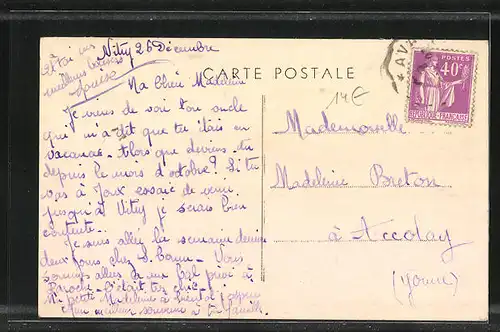 Vitry 26 Décembre
à toi ces
meilleurs baisers
Louise
CARTE POSTALE
14€
AV
POSTES
40c
RÉPUBLIQUE FRANÇAISE
Ma chère Madeleine
Je viens de voir ton oncle
qui m'a dit que tu étais en
vacances. Alors que deviens tu
depuis le mois d'octobre? Si tu
vas à Joux essaie de venir
jusqu'à Vitry je serais bien
contente.
Je suis allée la semaine dernière
deux jours chez
sommes allées à un bal privé à
c'était très chic
petite Madeleine à bientôt j'espère
meilleur souvenir à ta famille
Mademoiselle
Madeleine Breton
à Accolay
(Yonne)